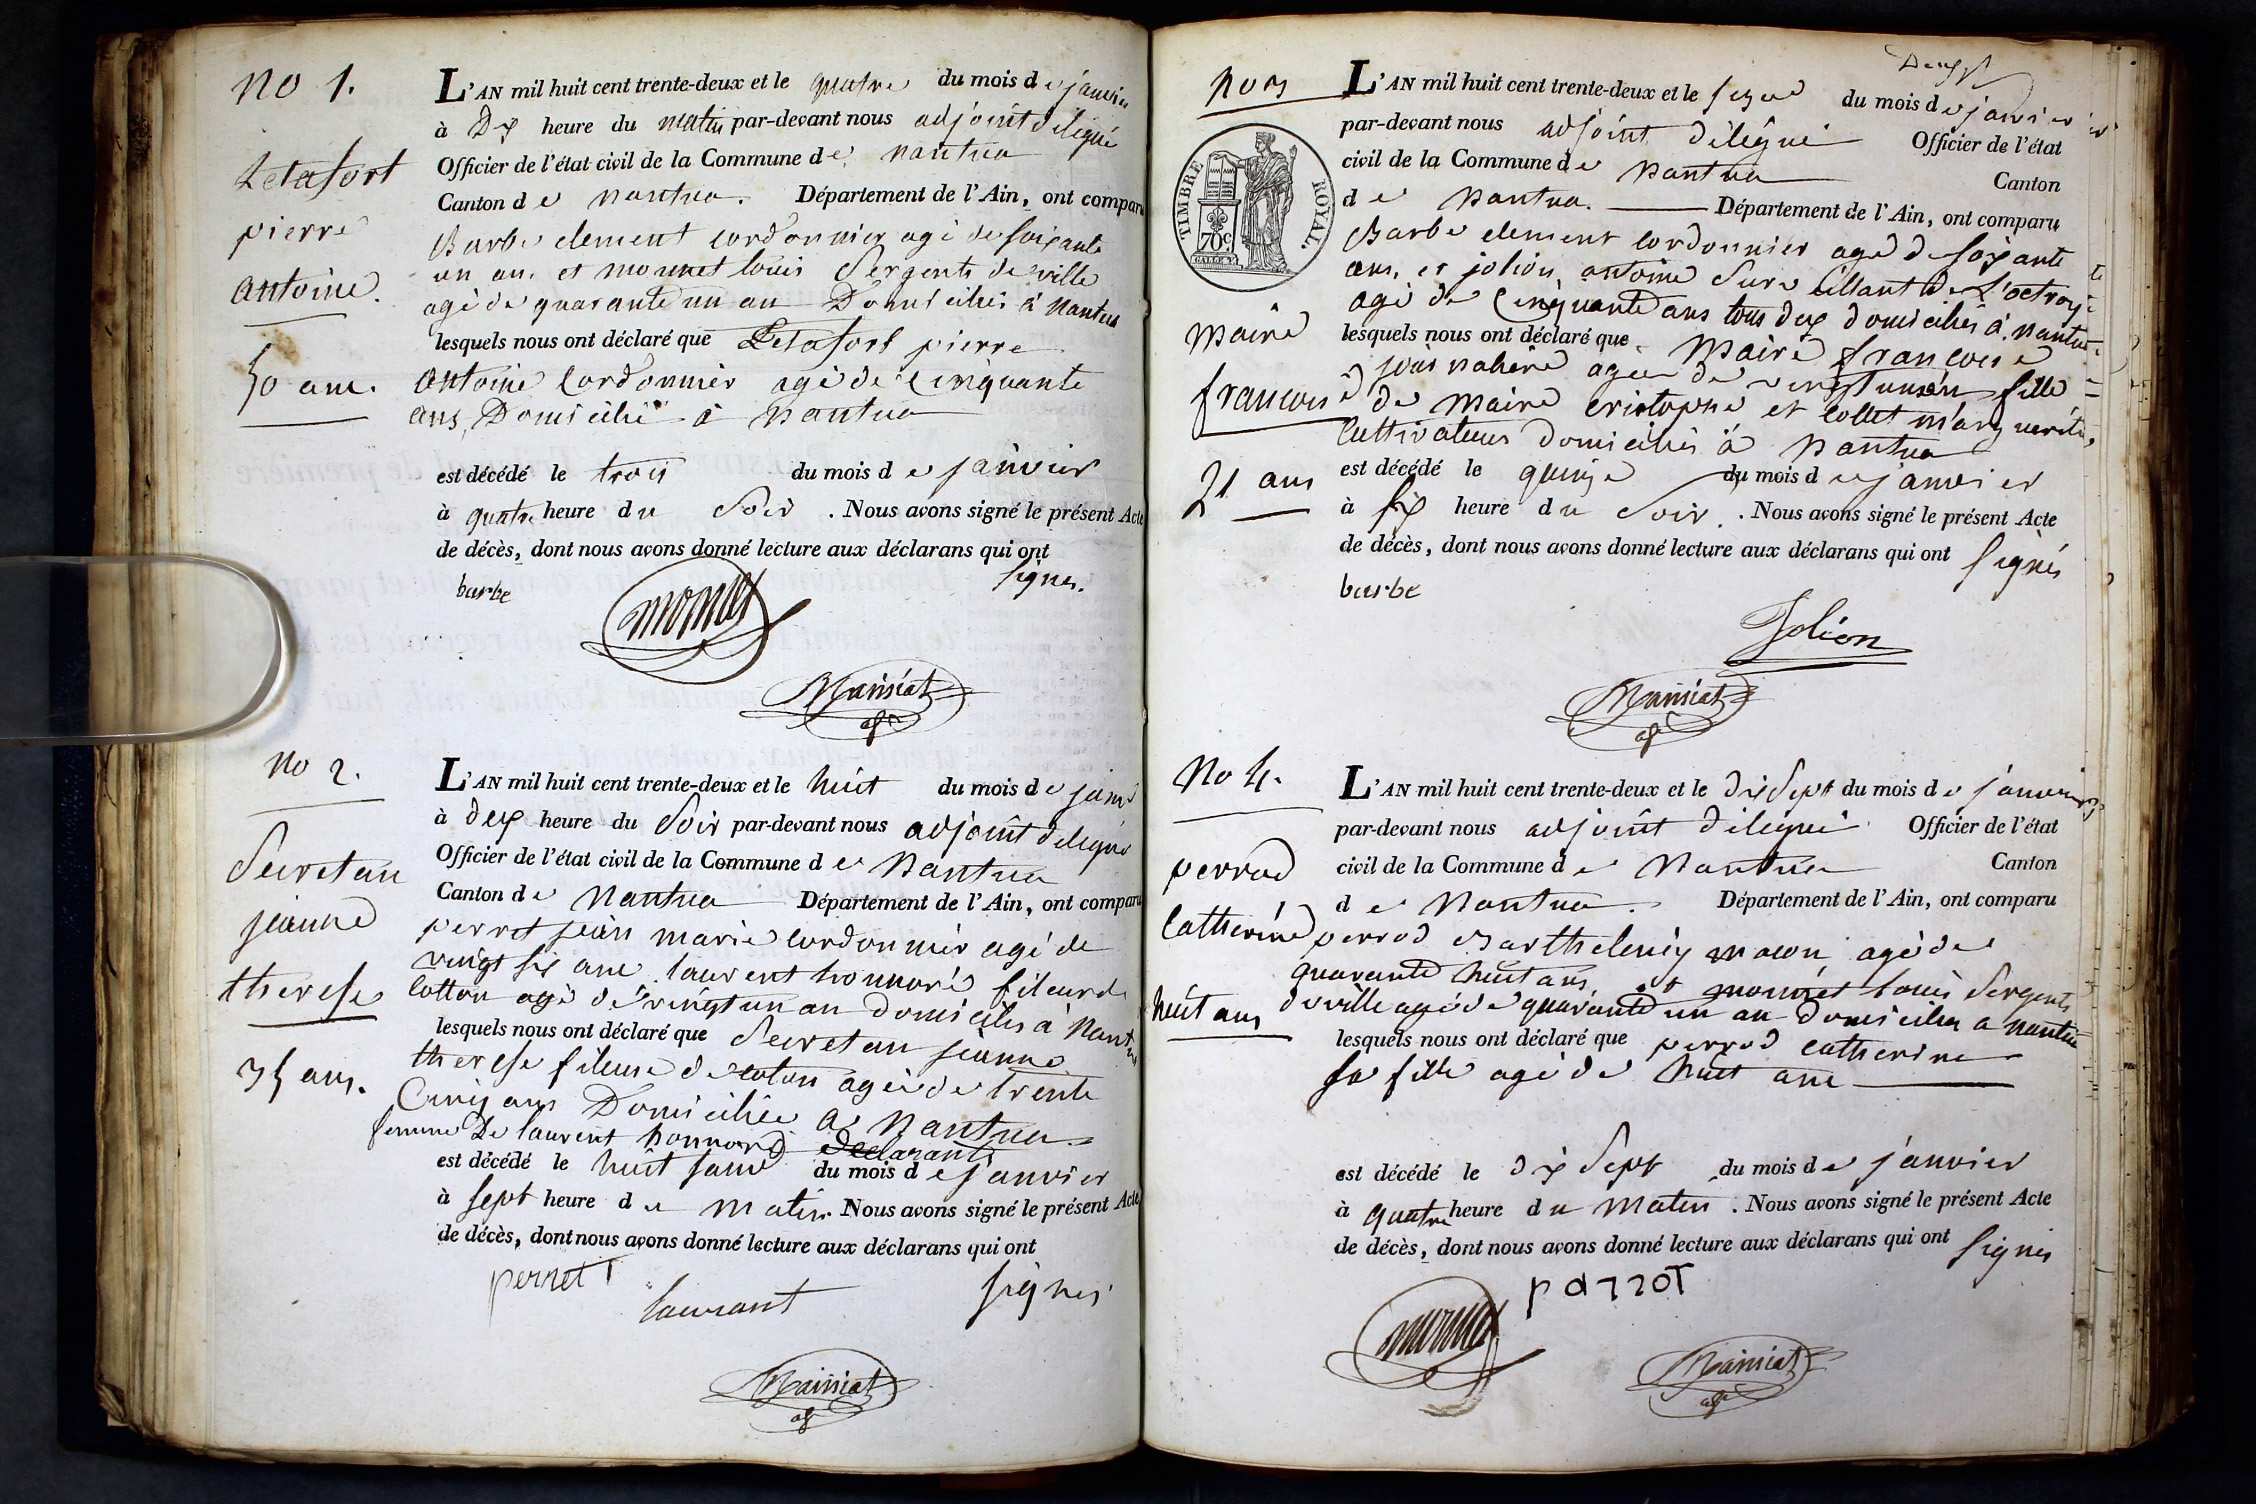 no 1.
Letafort
pierre
antoine.
50 ans.
L'AN mil huit cent trente-deux et le quatre du mois de janvier
à Dix heure du matin par-devant nous adjoint délégué
Officier de l'état civil de la Commune de nantua
Canton de nantua. Département de l'Ain, ont comparu
Barbe clement cordonnier agé de soixante
un an. et monnet louis sergents de ville
agé de quarante un an Domiciliés à nantua
lesquels nous ont déclaré que Letafort pierre
antoine cordonnier agé de cinquante
ans, Domicilié à nantua
est décédé le trois du mois de janvier
à quatre heure du soir. Nous avons signé le présent Acte
de décès, dont nous avons donné lecture aux déclarans qui ont
signés.
barbe
monnet
Mainiat
no 2.
Secretan
jeanne
therese
35 ans.
L'AN mil huit cent trente-deux et le huit du mois de janv
à deux heure du soir par-devant nous adjoint délégué
Officier de l'état civil de la Commune de nantua
Canton de nantua Département de l'Ain, ont comparu
perret jean marie cordonnier agé de
vingt six ans laurent honnoré fileur de
cotton agé de vingt un an domiciliés à nantua
lesquels nous ont déclaré que Secretan jeanne
therese fileuse de coton agée de trente
Cinq ans Domiciliée a nantua
femme De laurent honnoré declarants
est décédé le huit du mois de janvier
à sept heure du matin. Nous avons signé le présent Acte
de décès, dont nous avons donné lecture aux déclarans qui ont
signés
perret
laurant
Mainiat
no 3
TIMBRE ROYAL.
70c
maire
francoise
21 ans
L'AN mil huit cent trente-deux et le seize du mois de janvier
par-devant nous adjoint délégué Officier de l'état
civil de la Commune de nantua Canton
de nantua. Département de l'Ain, ont comparu
Barbe clement cordonnier agé de soixante
ans, et jolion antoine surveillant de l'octroy
agé de cinquante ans tous deux domiciliés à nantua
lesquels nous ont déclaré que maire francoise
journaliere agée de vingt un an fille
de maire cristophe et collet marguerite,
Cultivateurs domiciliés à nantua
est décédé le quinze du mois de janvier
à six heure du soir. Nous avons signé le présent Acte
de décès, dont nous avons donné lecture aux déclarans qui ont signés
barbe
Jolion
Mainiat
No 4.
perrod
Catherine
huit ans
L'AN mil huit cent trente-deux et le dix sept du mois de janvier
par-devant nous adjoint délégué Officier de l'état
civil de la Commune de Nantua Canton
de Nantua. Département de l'Ain, ont comparu
perrod Barthelemy macon agé de
quarante huit ans, et monnet louis sergents
de ville agé de quarante un an domiciliés a nantua
lesquels nous ont déclaré que perrod catherine
sa fille agé de huit ans
est décédé le dix sept du mois de janvier
à quatre heure du matin. Nous avons signé le présent Acte
de décès, dont nous avons donné lecture aux déclarans qui ont signés
monnet
Mainiat